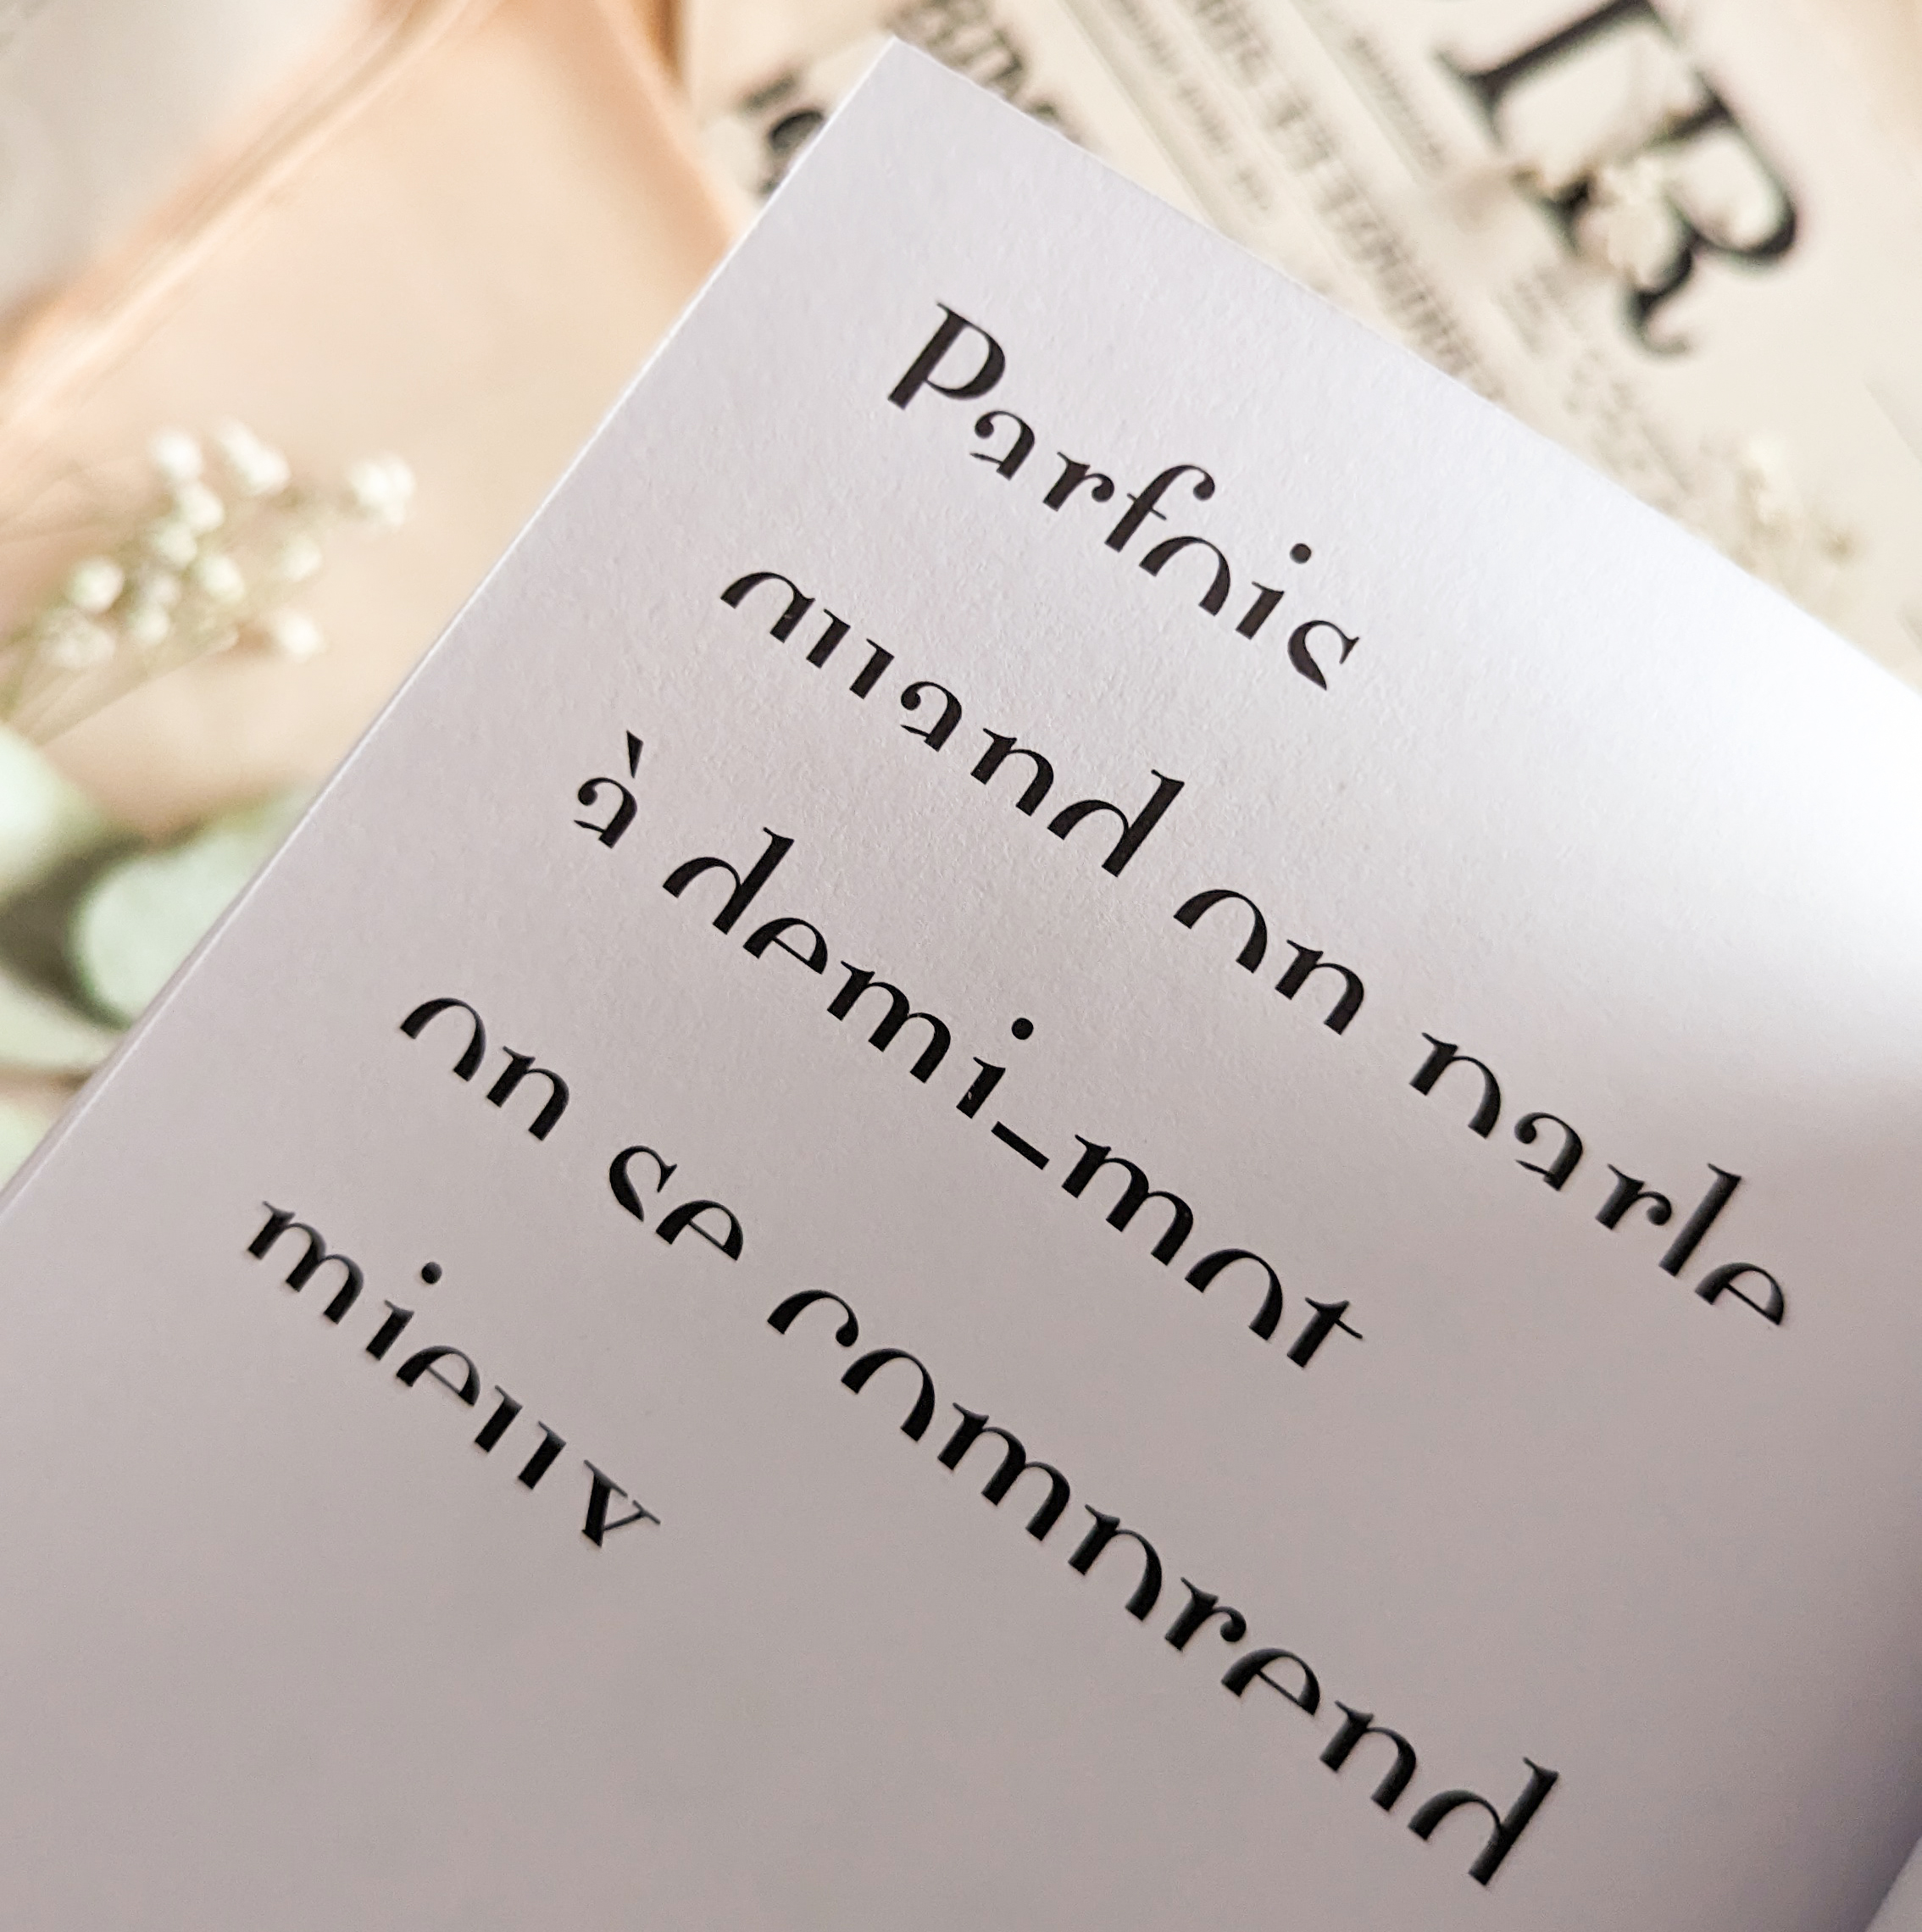 Parfois
quand on parle
à demi-mot
on se comprend
mieux